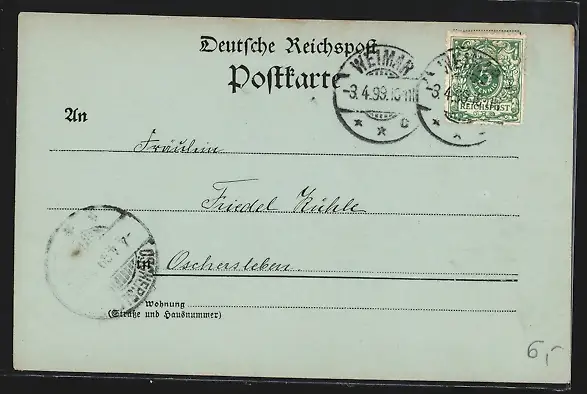 Deutsche Reichspost
Postkarte
WEIMAR
-3.4.99.
* * c
REICHSPOST
An
Fräulein
Friedel Kühle
in Oschersleben.
Wohnung
(Straße und Hausnummer)
6,-